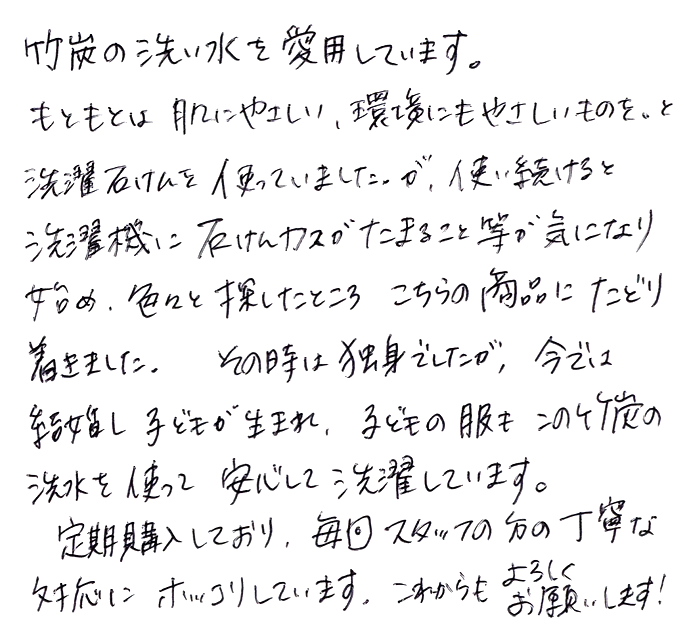 竹炭の洗い水を愛用しています。
もともとは 肌にやさしい、環境にもやさしいものを。と
洗濯石けんを 使っていました。が、使い続けると
洗濯機に 石けんカスがたまること等が気になり
始め、色々と探したところ こちらの商品に たどり
着きました。 その時は独身でしたが、今では
結婚し 子どもが生まれ、子どもの服も この竹炭の
洗水を使って 安心して洗濯しています。
定期購入しており、毎回スタッフの方の丁寧な
対応に ホッコリしています。これからも よろしく
お願いします!